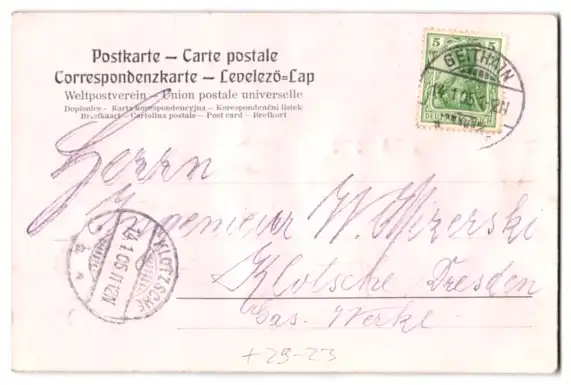 Postkarte – Carte postale
Correspondenzkarte – Levelező=Lap
Weltpostverein – Union postale universelle
Dopisnice - Karta korespondencyjna – Korespondenční lístek
Brefkaart – Cartolina postale – Post card – Brefkort
5 5
GEITHAIN
14.1.05 12N
Herrn
Ingenieur W. Mizerski
Klotsche Dresden
Gas. Werke
KLOTZSCHE
14.1.05 11-12N
+29-23